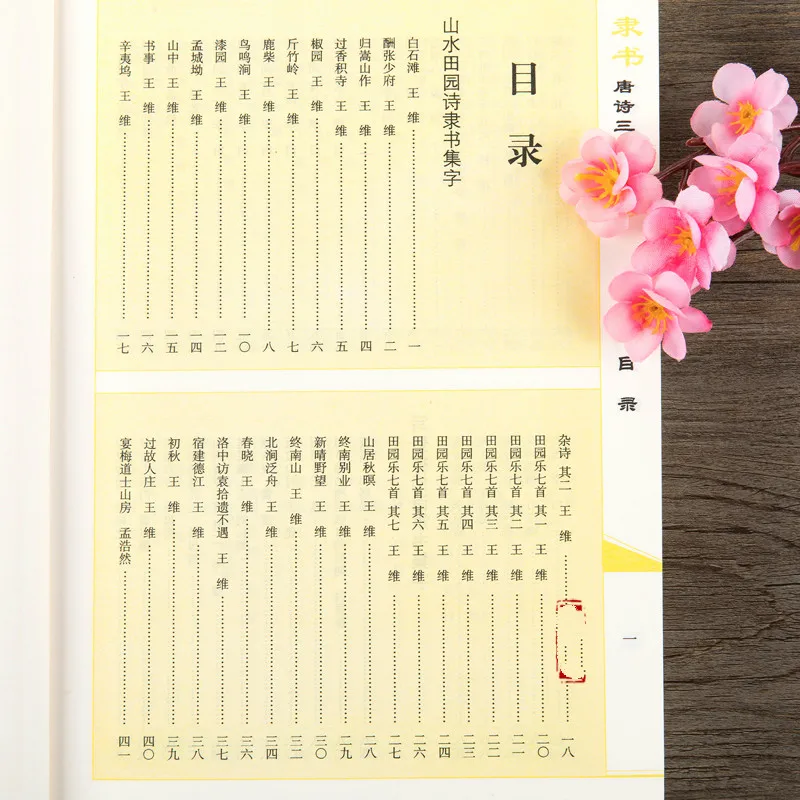 隶书
唐诗三
目录
一
目录
山水田园诗隶书集字
白石滩 王维……一
酬张少府 王维……二
归嵩山作 王维……四
过香积寺 王维……五
椒园 王维……六
斤竹岭 王维……七
鹿柴 王维……八
鸟鸣涧 王维……一〇
漆园 王维……一二
孟城坳 王维……一四
山中 王维……一五
书事 王维……一六
辛夷坞 王维……一七
杂诗 其二 王维……一八
田园乐七首 其一 王维……二〇
田园乐七首 其二 王维……二一
田园乐七首 其三 王维……二二
田园乐七首 其四 王维……二三
田园乐七首 其五 王维……二四
田园乐七首 其六 王维……二六
田园乐七首 其七 王维……二七
山居秋暝 王维……二八
终南别业 王维……二九
新晴野望 王维……三〇
终南山 王维……三二
北涧泛舟 王维……三四
春晓 王维……三六
洛中访袁拾遗不遇 王维……三七
宿建德江 王维……三八
初秋 王维……三九
过故人庄 王维……四〇
宴梅道士山房 孟浩然……四一